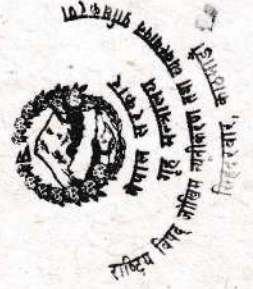 नेपाल सरकार
गृह मन्त्रालय
राष्ट्रिय विपद् जोखिम न्यूनीकरण तथा व्यवस्थापन प्राधिकरण
सिंहदरबार, काठमाडौं